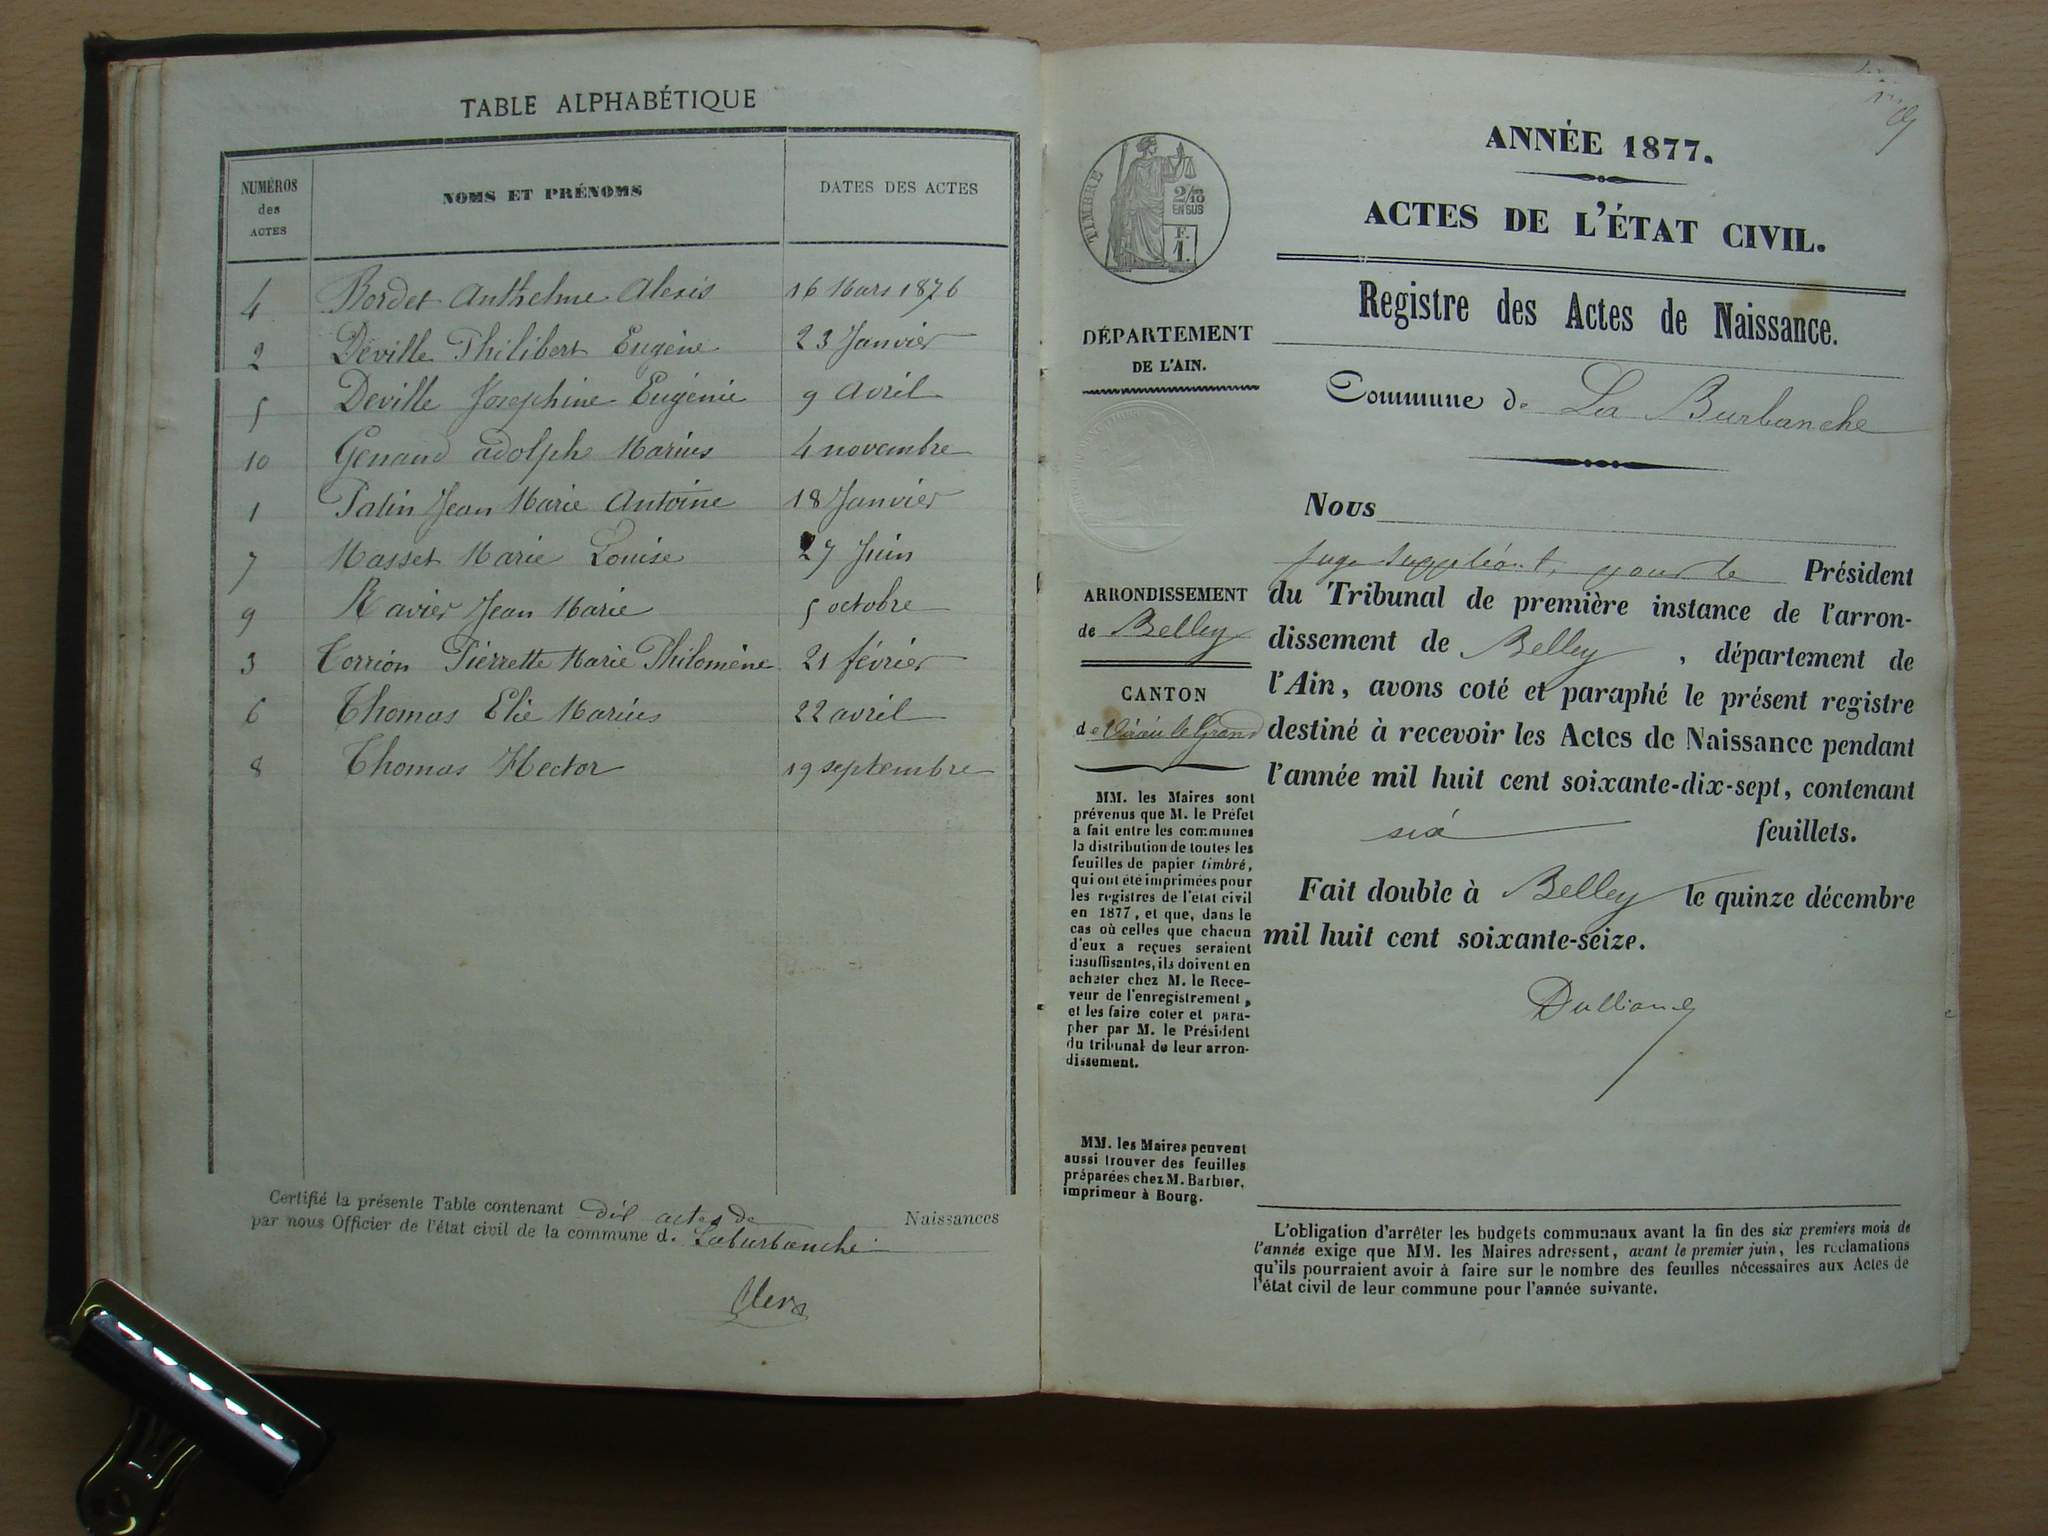 TABLE ALPHABÉTIQUE
NUMÉROS des ACTES NOMS ET PRÉNOMS DATES DES ACTES
4 Bordet Anthelme Alexis 16 Mars 1876
2 Déville Philibert Eugène 23 Janvier
5 Déville Joséphine Eugénie 9 avril
10 Genaud adolphe Marius 4 novembre
1 Jean Marie Antoine 18 Janvier
7 Masset Marie Louise 27 Juin
9 Ravier Jean Marie 5 octobre
3 Torrion Pierrette Marie Philomène 21 février
6 Thomas Elie Marius 22 avril
8 Thomas Hector 19 septembre
Certifié la présente Table contenant dix actes de Naissances
par nous Officier de l'état civil de la commune d. Laburbanche
ANNÉE 1877.
ACTES DE L'ÉTAT CIVIL.
Registre des Actes de Naissance.
Commune de La Burbanche
TIMBRE
2/10
EN SUS
F.
1.
DÉPARTEMENT
DE L'AIN.
ARRONDISSEMENT
de Belley
CANTON
de le Grand
MM. les Maires sont
prévenus que M. le Préfet
a fait entre les communes
la distribution de toutes les
feuilles de papier timbré,
qui ont été imprimées pour
les registres de l'état civil
en 1877, et que, dans le
cas où celles que chacun
d'eux a reçues seraient
insuffisantes, ils doivent en
acheter chez M. le Rece-
veur de l'enregistrement,
et les faire coter et para-
pher par M. le Président
du tribunal de leur arron-
dissement.
MM. les Maires peuvent
aussi trouver des feuilles
préparées chez M. Barbier,
imprimeur à Bourg.
Nous
juge suppléant, pour le Président
du Tribunal de première instance de l'arron-
dissement de Belley, département de
l'Ain, avons coté et paraphé le présent registre
destiné à recevoir les Actes de Naissance pendant
l'année mil huit cent soixante-dix-sept, contenant
six feuillets.
Fait double à Belley le quinze décembre
mil huit cent soixante-seize.
L'obligation d'arrêter les budgets communaux avant la fin des six premiers mois de
l'année exige que MM. les Maires adressent, avant le premier juin, les réclamations
qu'ils pourraient avoir à faire sur le nombre des feuilles nécessaires aux Actes de
l'état civil de leur commune pour l'année suivante.